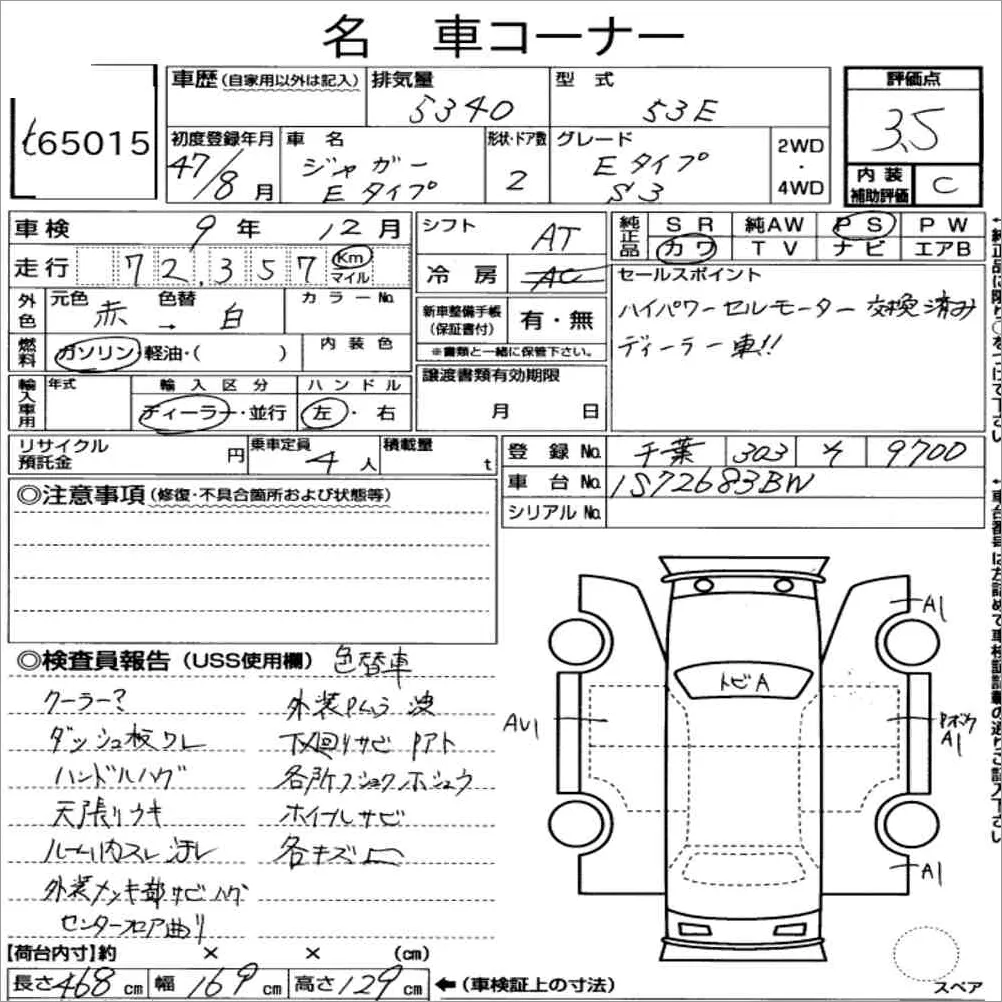 名 車コーナー
t65015
車歴(自家用以外は記入)
排気量 5340
型式 53E
評価点 3.5
初度登録年月 47/8月
車名 ジャガー Eタイプ
形状・ドア数 2
グレード Eタイプ S3
2WD・4WD
内装補助評価 C
車検 9年 12月
走行 72,357 Km マイル
シフト AT
冷房 AC
純正品 SR 純AW PS PW
カワ TV ナビ エアB
セールスポイント
ハイパワーセルモーター交換済み
ディーラー車!!
外色 元色 赤 → 色替 白 カラーNo.
燃料 ガソリン・軽油・( ) 内装色
新車整備手帳(保証書付) 有・無
※書類と一緒に保管下さい。
輸入車用 年式 輸入区分 ディーラー・並行 ハンドル 左・右
譲渡書類有効期限
月 日
リサイクル預託金 円 乗車定員 4人 積載量 t
登録No. 千葉 303 そ 9700
車台No. 1S72683BW
シリアルNo.
◎注意事項(修復・不具合箇所および状態等)
◎検査員報告(USS使用欄) 色替車
クーラー?
ダッシュ板ワレ
ハンドルハゲ
天張りウキ
ルーム内スレ汚レ
外装メッキ部サビハゲ
センターフロア曲り
外装Pムラ 波
下回りサビ Pアト
各所フショクホシュウ
ホイールサビ
各キズ凹
トビA
A1
AU1
Pボケ
A1
A1
スペア
【荷台内寸】約 × × (cm)
長さ468cm 幅169cm 高さ129cm ←(車検証上の寸法)